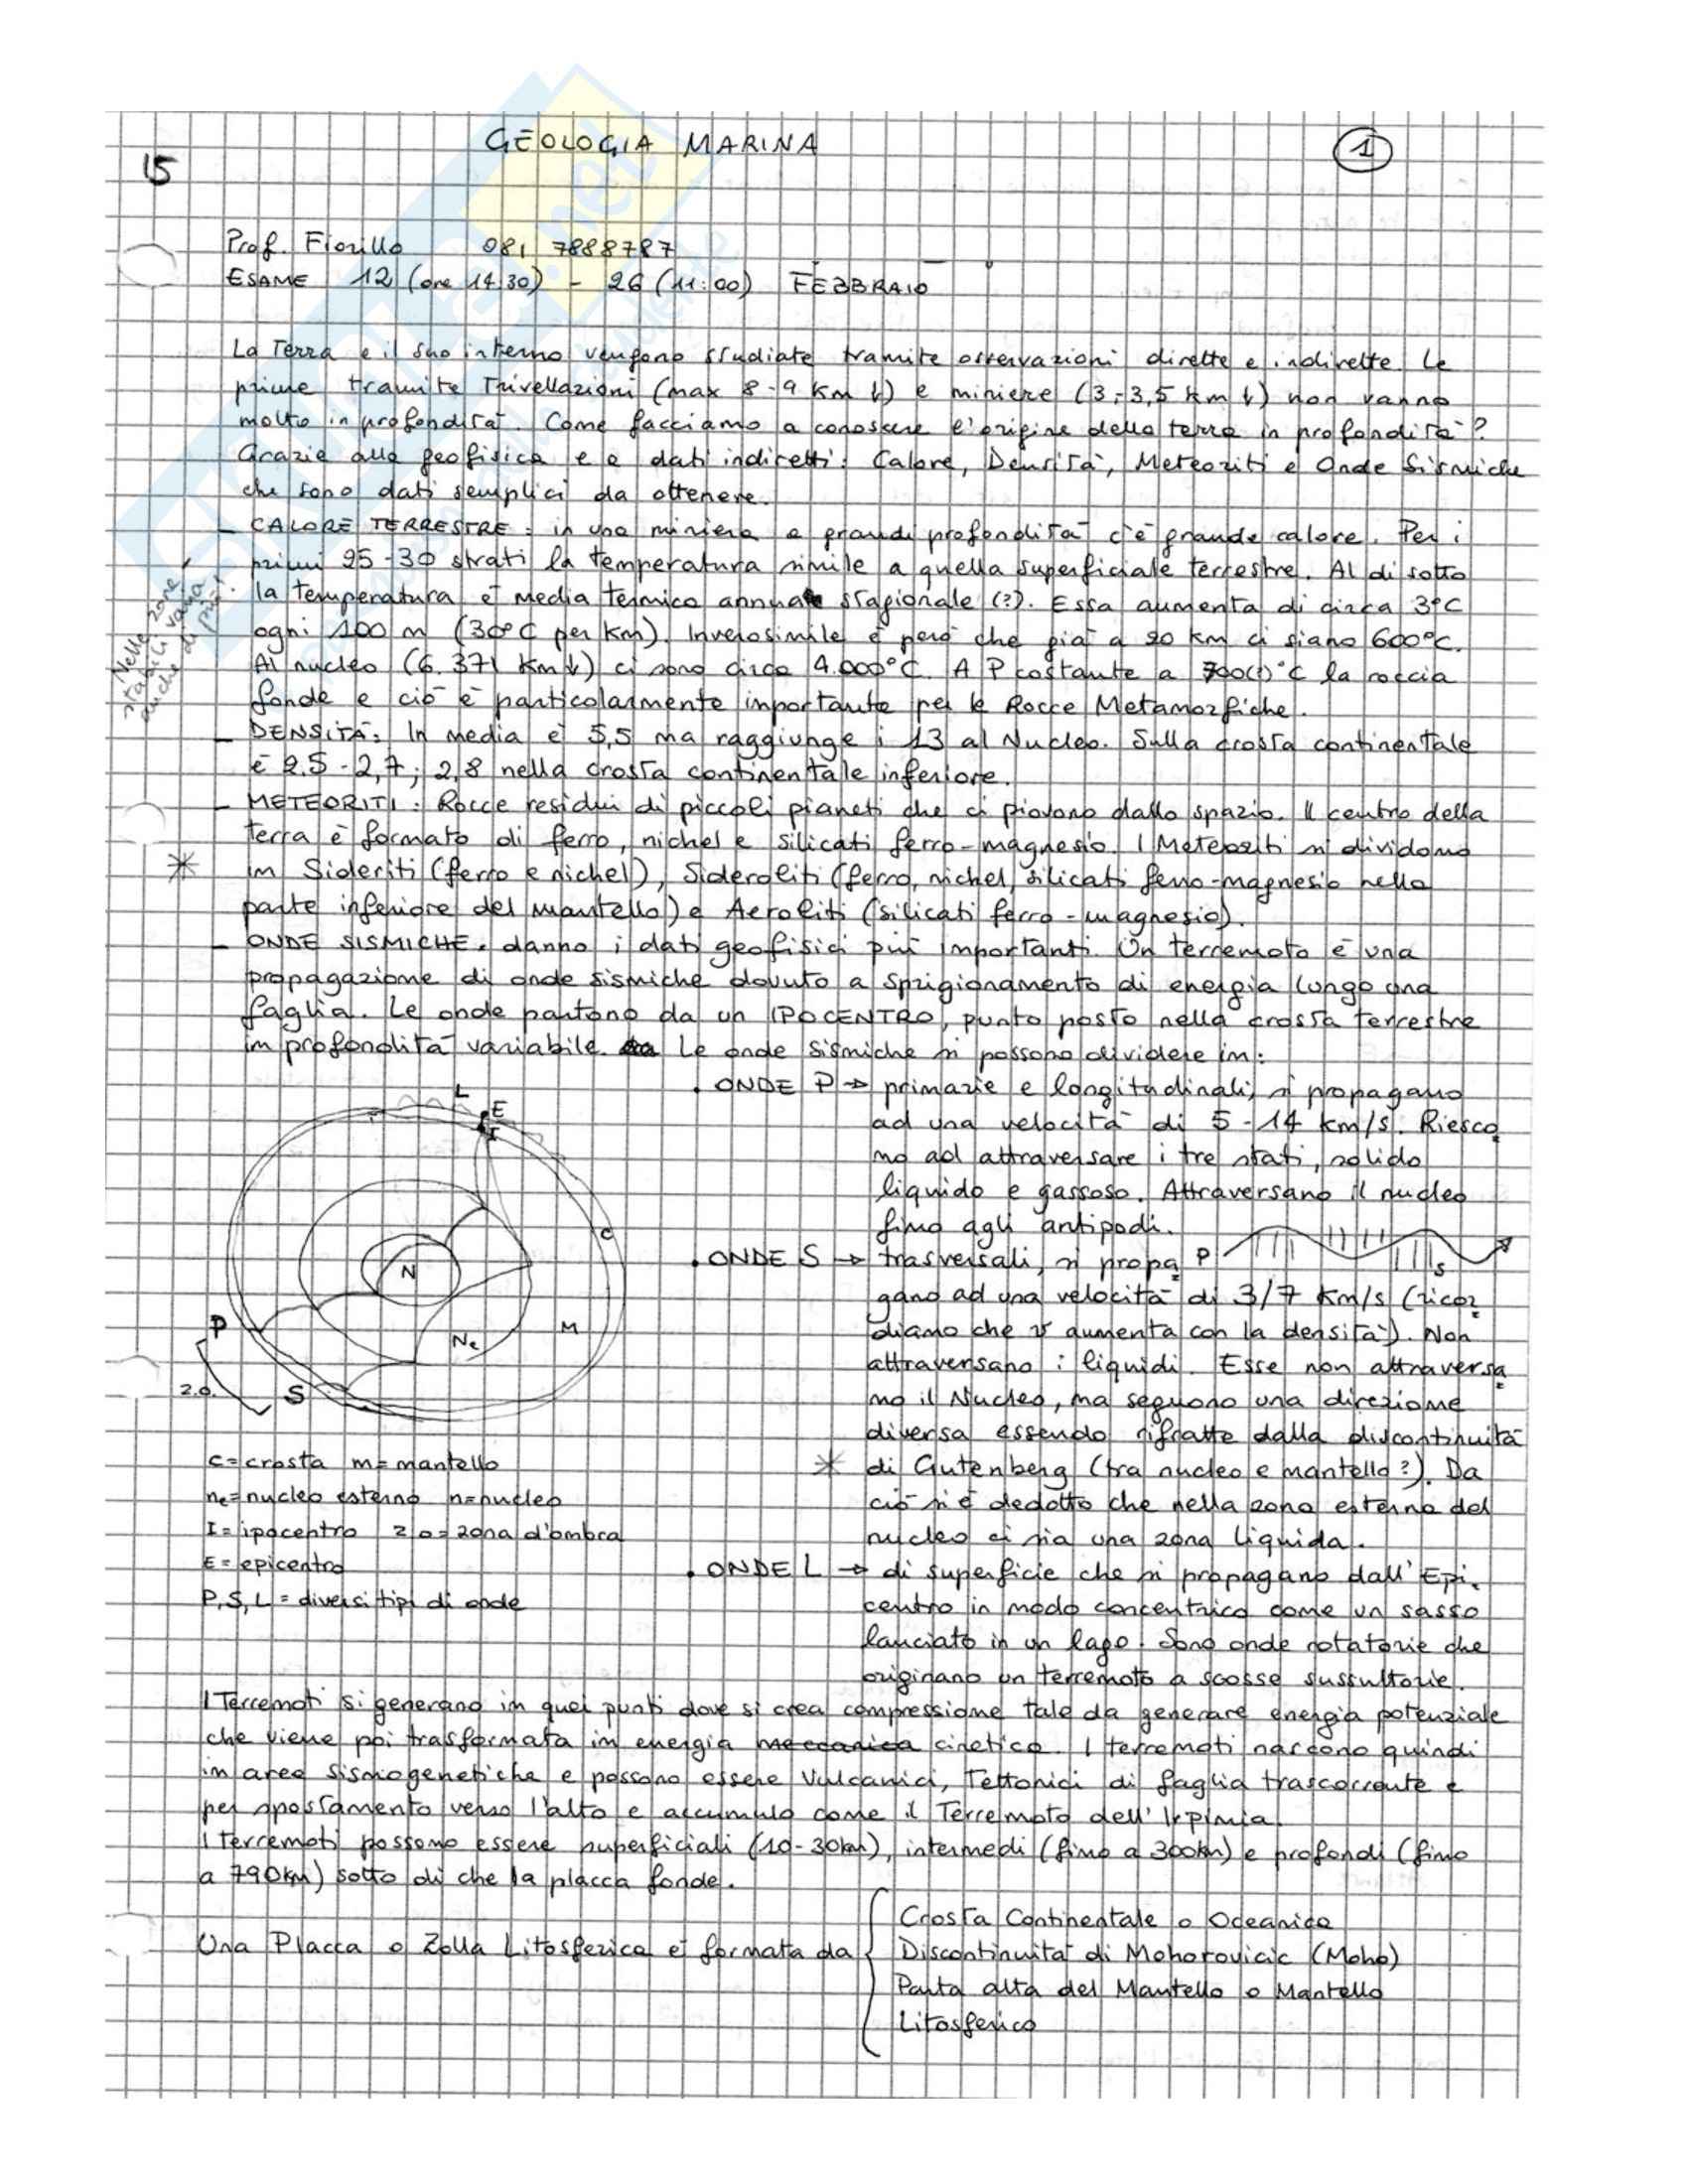 GEOLOGIA MARINA
1
15
Prof. Fiorillo 081 7888787
ESAME 12 (ore 14:30) - 26 (11:00) FEBBRAIO
La Terra e il suo interno vengono studiate tramite osservazioni dirette e indirette. Le
prime tramite Trivellazioni (max 8-9 Km ↓) e miniere (3-3,5 Km ↓) non vanno
molto in profondità. Come facciamo a conoscere l'origine della terra in profondità?
Grazie alla geofisica e a dati indiretti: Calore, Densità, Meteoriti e Onde Sismiche
che sono dati semplici da ottenere.
- CALORE TERRESTRE: in una miniera a grandi profondità c'è grande calore. Per i
primi 25-30 strati la temperatura simile a quella superficiale terrestre. Al di sotto
la temperatura è media termico annua stagionale (?). Essa aumenta di circa 3°C
ogni 100 m (30°C per Km). Inverosimile è però che già a 20 km ci siano 600°C.
Al nucleo (6.371 Km↓) ci sono circa 4.000°C. A P costante a 700(?)°C la roccia
fonde e ciò è particolarmente importante per le Rocce Metamorfiche.
Nelle zone
stabili varia
anche di più!
- DENSITÀ: In media è 5,5 ma raggiunge i 13 al Nucleo. Sulla crosta continentale
è 2.5-2,7; 2,8 nella crosta continentale inferiore.
- METEORITI: Rocce residui di piccoli pianeti che ci piovono dallo spazio. Il centro della
terra è formato di ferro, nichel e silicati ferro-magnesio. I Meteoriti si dividono
* in Sideriti (ferro e nichel), Sideroliti (ferro, nichel, silicati ferro-magnesio nella
parte inferiore del mantello) e Aeroliti (silicati ferro-magnesio).
- ONDE SISMICHE: danno i dati geofisici più importanti. Un terremoto è una
propagazione di onde sismiche dovuto a sprigionamento di energia lungo una
faglia. Le onde partono da un IPOCENTRO, punto posto nella crosta terrestre
in profondità variabile. Le onde sismiche si possono dividere in:
. ONDE P → primarie e longitudinali, si propagano
ad una velocità di 5-14 km/s. Riesco
no ad attraversare i tre stati, solido
liquido e gassoso. Attraversano il nucleo
fino agli antipodi.
. ONDE S → trasversali, si propa
gano ad una velocità di 3/7 Km/s (ricor
diamo che v aumenta con la densità). Non
attraversano i liquidi. Esse non attraversa
no il Nucleo, ma seguono una direzione
diversa essendo rifratte dalla discontinuità
* di Gutenberg (tra nucleo e mantello?). Da
ciò si è dedotto che nella zona esterna del
nucleo ci sia una zona liquida.
P
S
. ONDE L → di superficie che si propagano dall'Epi.
centro in modo concentrico come un sasso
lanciato in un lago. Sono onde rotatorie che
originano un terremoto a scosse sussultorie.
L
E
I
C
N
Ne
M
P
S
z.o.
c=crosta m=mantello
ne=nucleo esterno n=nucleo
I=ipocentro z.o=zona d'ombra
E=epicentro
P,S,L=diversi tipi di onde
I Terremoti si generano in quei punti dove si crea compressione tale da generare energia potenziale
che viene poi trasformata in energia meccanica cinetica. I terremoti nascono quindi
in aree sismogenetiche e possono essere Vulcanici, Tettonici di faglia trascorrente e
per spostamento verso l'alto e accumulo come il Terremoto dell'Irpinia.
I terremoti possono essere superficiali (10-30km), intermedi (fino a 300km) e profondi (fino
a 790km) sotto di che la placca fonde.
Una Placca o Zolla Litosferica è formata da
Crosta Continentale o Oceanica
Discontinuità di Mohorovicic (Moho)
Parta alta del Mantello o Mantello
Litosferico